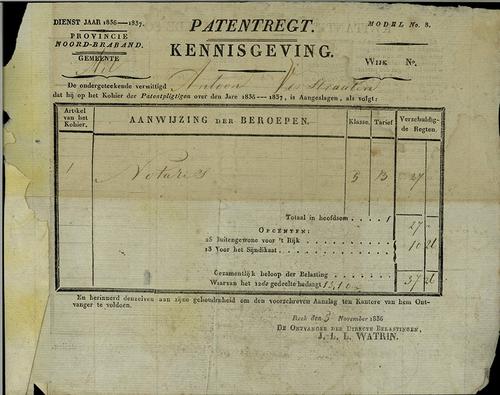 DIENST JAAR 1836—1837.
PROVINCIE
NOORD-BRABAND.
GEMEENTE
PATENTREGT.
KENNISGEVING.
MODEL No. 8.
WIJK No.
De ondergeteekende verwittigd Antoon
dat hij op het Kohier der Patentpligtigen over den Jare 1836—1837, is Aangeslagen, als volgt:
Artikel van het Kohier. AANWIJZING DER BEROEPEN. Klasse. Tarief Verschuldigde Regten.
1 Notaris 5 B 27
Totaal in hoofdsom . . . 27
OPCENTEN:
Buitengewone voor 't Rijk
13 Voor het Sijndikaat
10 26
Gezamentlijk beloop der Belasting 37 26
Waarvan het 12de gedeelte bedraagt
En herinnerd denzelven aan zijne gehoudenheid om den voorschreven Aanslag ten Kantore van hem Ont-
vanger te voldoen.
Beek den 3 November 1836
DE ONTVANGER DER DIRECTE BELASTINGEN,
J. L. L. WATRIN.